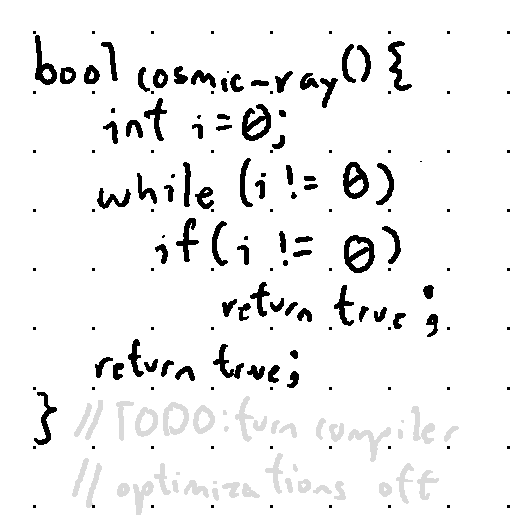 bool cosmic-ray() {
int i=0;
while (i != 0)
if(i != 0)
return true;
return true;
} // TODO: turn compiler
// optimizations off